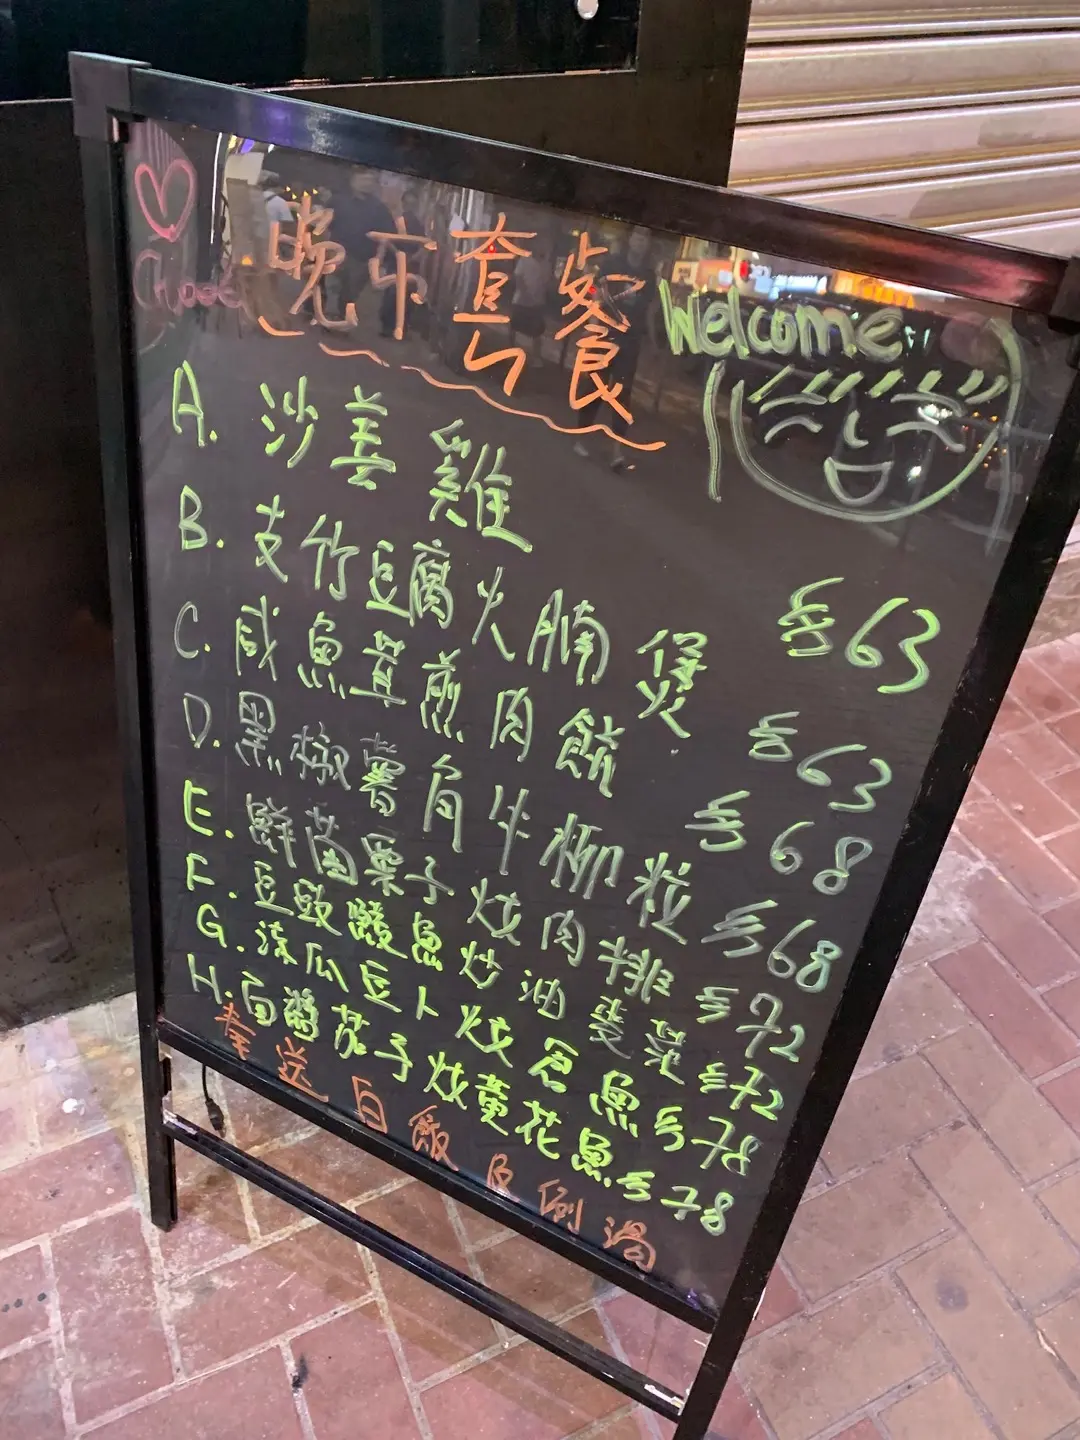 晚市套餐
Welcome
A. 沙姜雞 $63
B. 支竹豆腐火腩煲 $63
C. 咸魚茸煎肉餅 $68
D. 黑椒薯角牛柳粒 $68
E. 鮮菌栗子炆肉排 $72
F. 豆豉鯪魚炒油麥菜 $72
G. 涼瓜豆卜炆倉魚 $78
H. 面醬茄子炆黃花魚 $78
奉送白飯及例湯